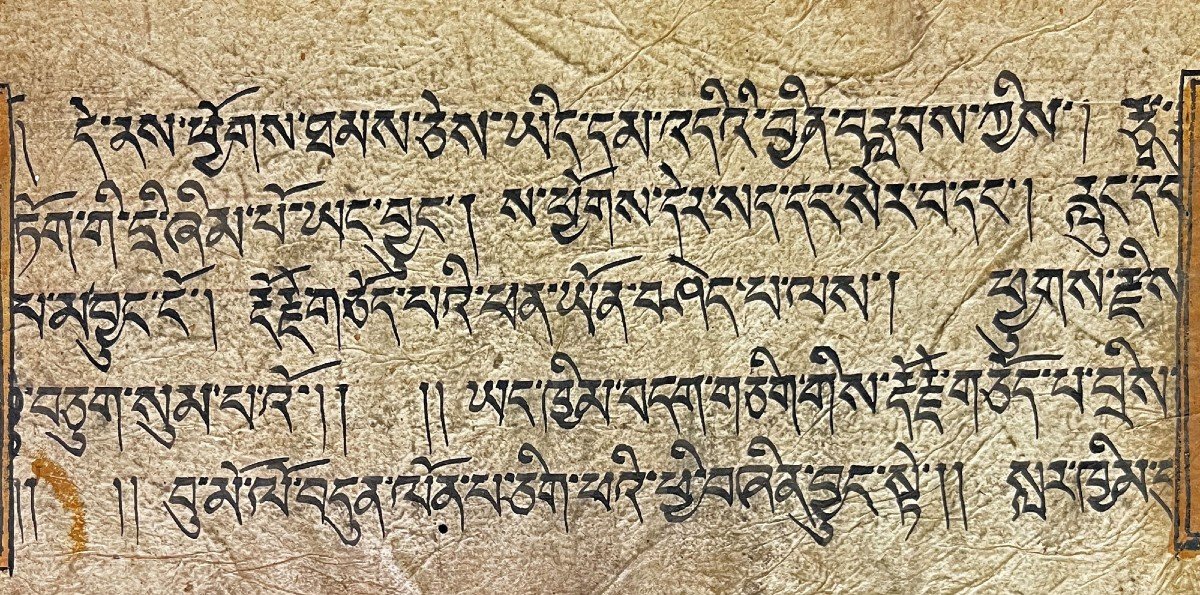 ། དེ་ནས་ཕྱོགས་ཐམས་ཅེས་ཡིད་དམ་འདིའི་བྱིན་བརླབས་ཀྱིས། །
ཏོག་གི་དྲི་ཞིམ་པོ་ཡང་བྱུང་། ས་ཕྱོགས་དེར་སད་དང་སེར་བ་དང་། རླུང་དང
པ་མ་བྱུང་ངོ་། རྡོ་རྗེ་གཅོད་པའི་ཕན་ཡོན་བཤད་པ་ལས། ཕྱགས་རྫིས
བཅུག་སུམ་པའོ།། །། ཡང་ཁྱིམ་བདག་གཅིག་གིས་རྡོ་རྗེ་གཅོད་པ་བྲིས་
།། །། བུ་མོ་ལོ་བདུན་ལོན་པ་ཅིག་པའི་ཕྱི་བཞིན་བྱུང་སྟེ།། སླར་ཁྱིམ་ད